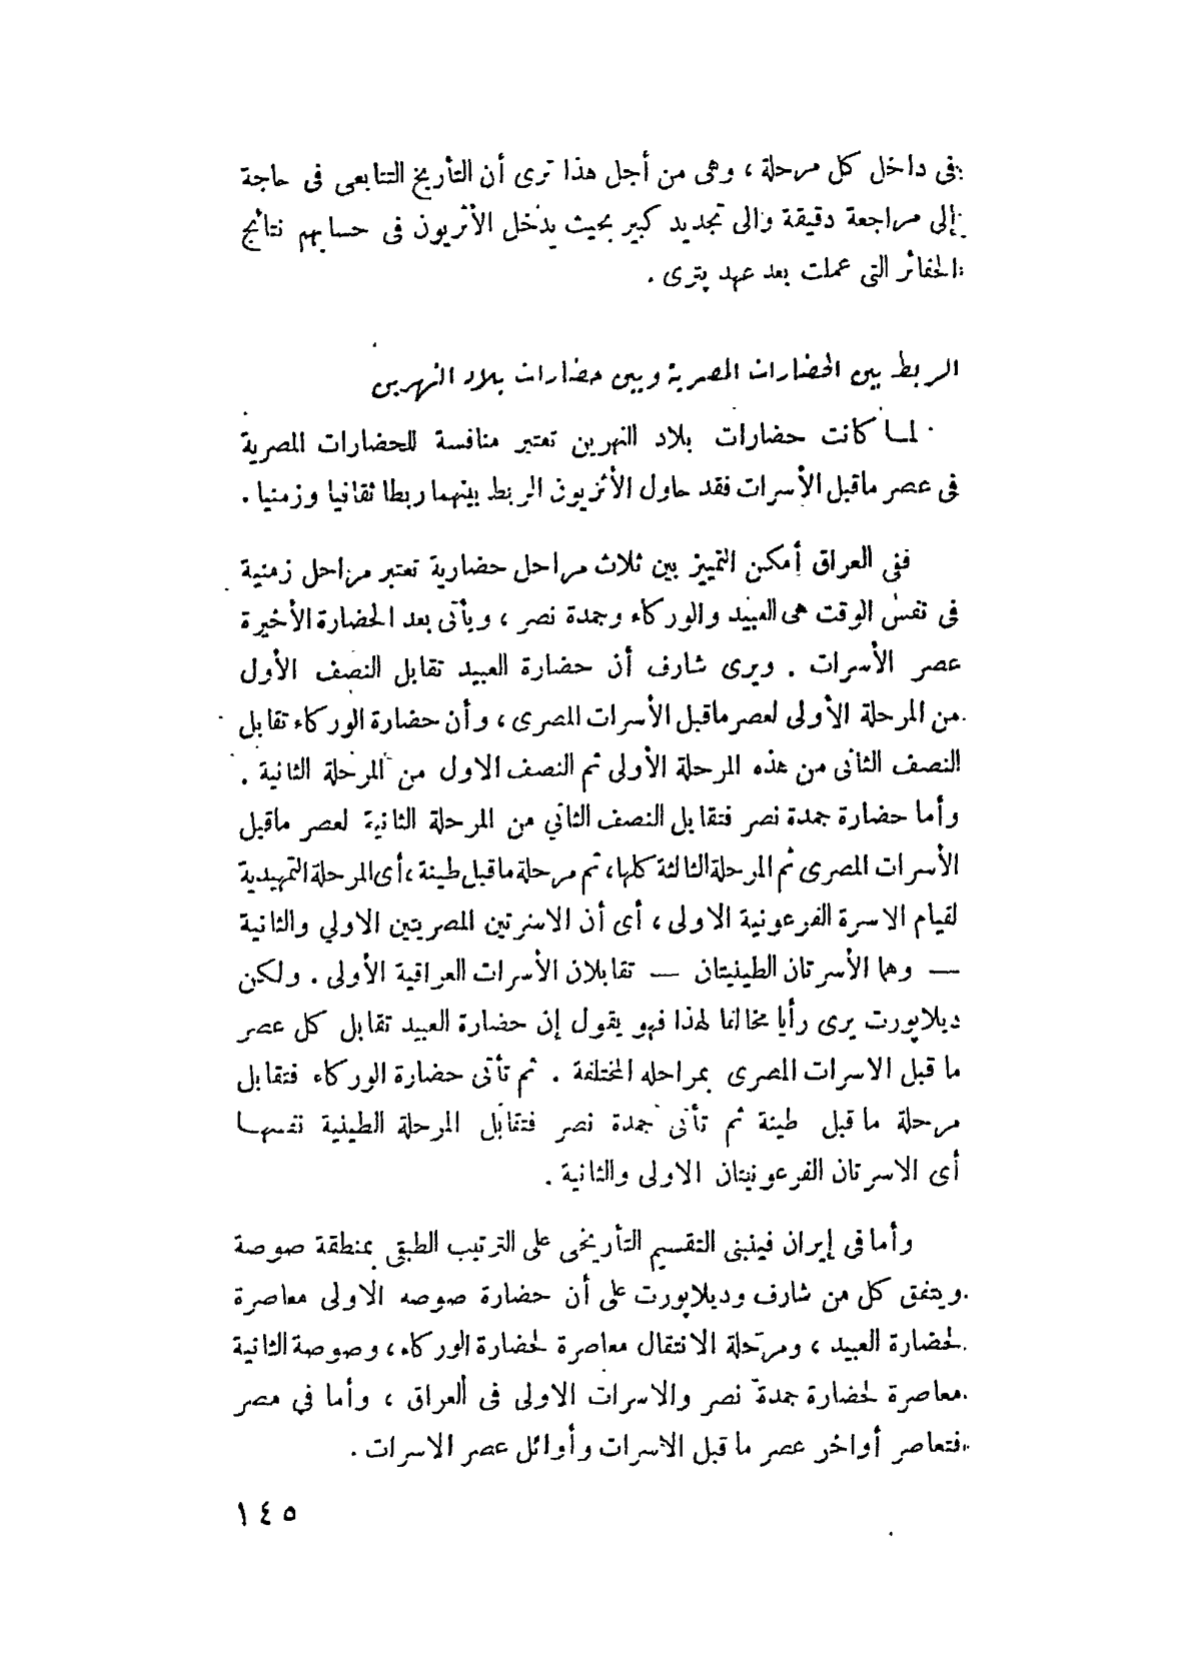 فى داخل كل مرحلة ، وهى من أجل هذا ترى أن التأريخ التتابعى فى حاجة
إلى مراجعة دقيقة والى تجديد كبير بحيث يدخل الأثريون فى حسابهم نتائج
الحفائر التى عملت بعد عهد پترى .
الربط بين الحضارات المصرية وبين حضارات بلاد النهرين
لما كانت حضارات بلاد النهرين تعتبر منافسة للحضارات المصرية
فى عصر ماقبل الأسرات فقد حاول الأثريون الربط بينهما ربطا ثقافيا وزمنيا .
ففى العراق أمكن التمييز بين ثلاث مراحل حضارية تعتبر مراحل زمنية
فى نفس الوقت هى العبيد والوركاء وجمدة نصر ، ويأتى بعد الحضارة الأخيرة
عصر الأسرات . ويرى شارف أن حضارة العبيد تقابل النصف الأول
من المرحلة الأولى لعصر ماقبل الأسرات المصرى ، وأن حضارة الوركاء تقابل
النصف الثانى من هذه المرحلة الأولى ثم النصف الاول من المرحلة الثانية .
وأما حضارة جمدة نصر فتقابل النصف الثاني من المرحلة الثانية لعصر ماقبل
الأسرات المصرى ثم المرحلة الثالثة كلها ، ثم مرحلة ماقبل طينة ، أى المرحلة التمهيدية
لقيام الاسرة الفرعونية الاولى ، أى أن الاسرتين المصريتين الاولي والثانية
— وهما الأسرتان الطينيتان — تقابلان الأسرات العراقية الأولى . ولكن
ديلاپورت يرى رأيا مخالفا لهذا فهو يقول إن حضارة العبيد تقابل كل عصر
ما قبل الاسرات المصرى بمراحله المختلفة . ثم تأتى حضارة الوركاء فتقابل
مرحلة ما قبل طينة ثم تأتى جمدة نصر فتقابل المرحلة الطينية نفسها
أى الاسرتان الفرعونيتان الاولى والثانية .
وأما فى إيران فينبنى التقسيم التأريخى على الترتيب الطبقى بمنطقة صوصة
ويتفق كل من شارف وديلاپورت على أن حضارة صوصه الاولى معاصرة
لحضارة العبيد ، ومرحلة الانتقال معاصرة لحضارة الوركاء ، وصوصة الثانية
معاصرة لحضارة جمدة نصر والاسرات الاولى فى العراق ، وأما في مصر
فتعاصر أواخر عصر ما قبل الاسرات وأوائل عصر الاسرات .
١٤٥